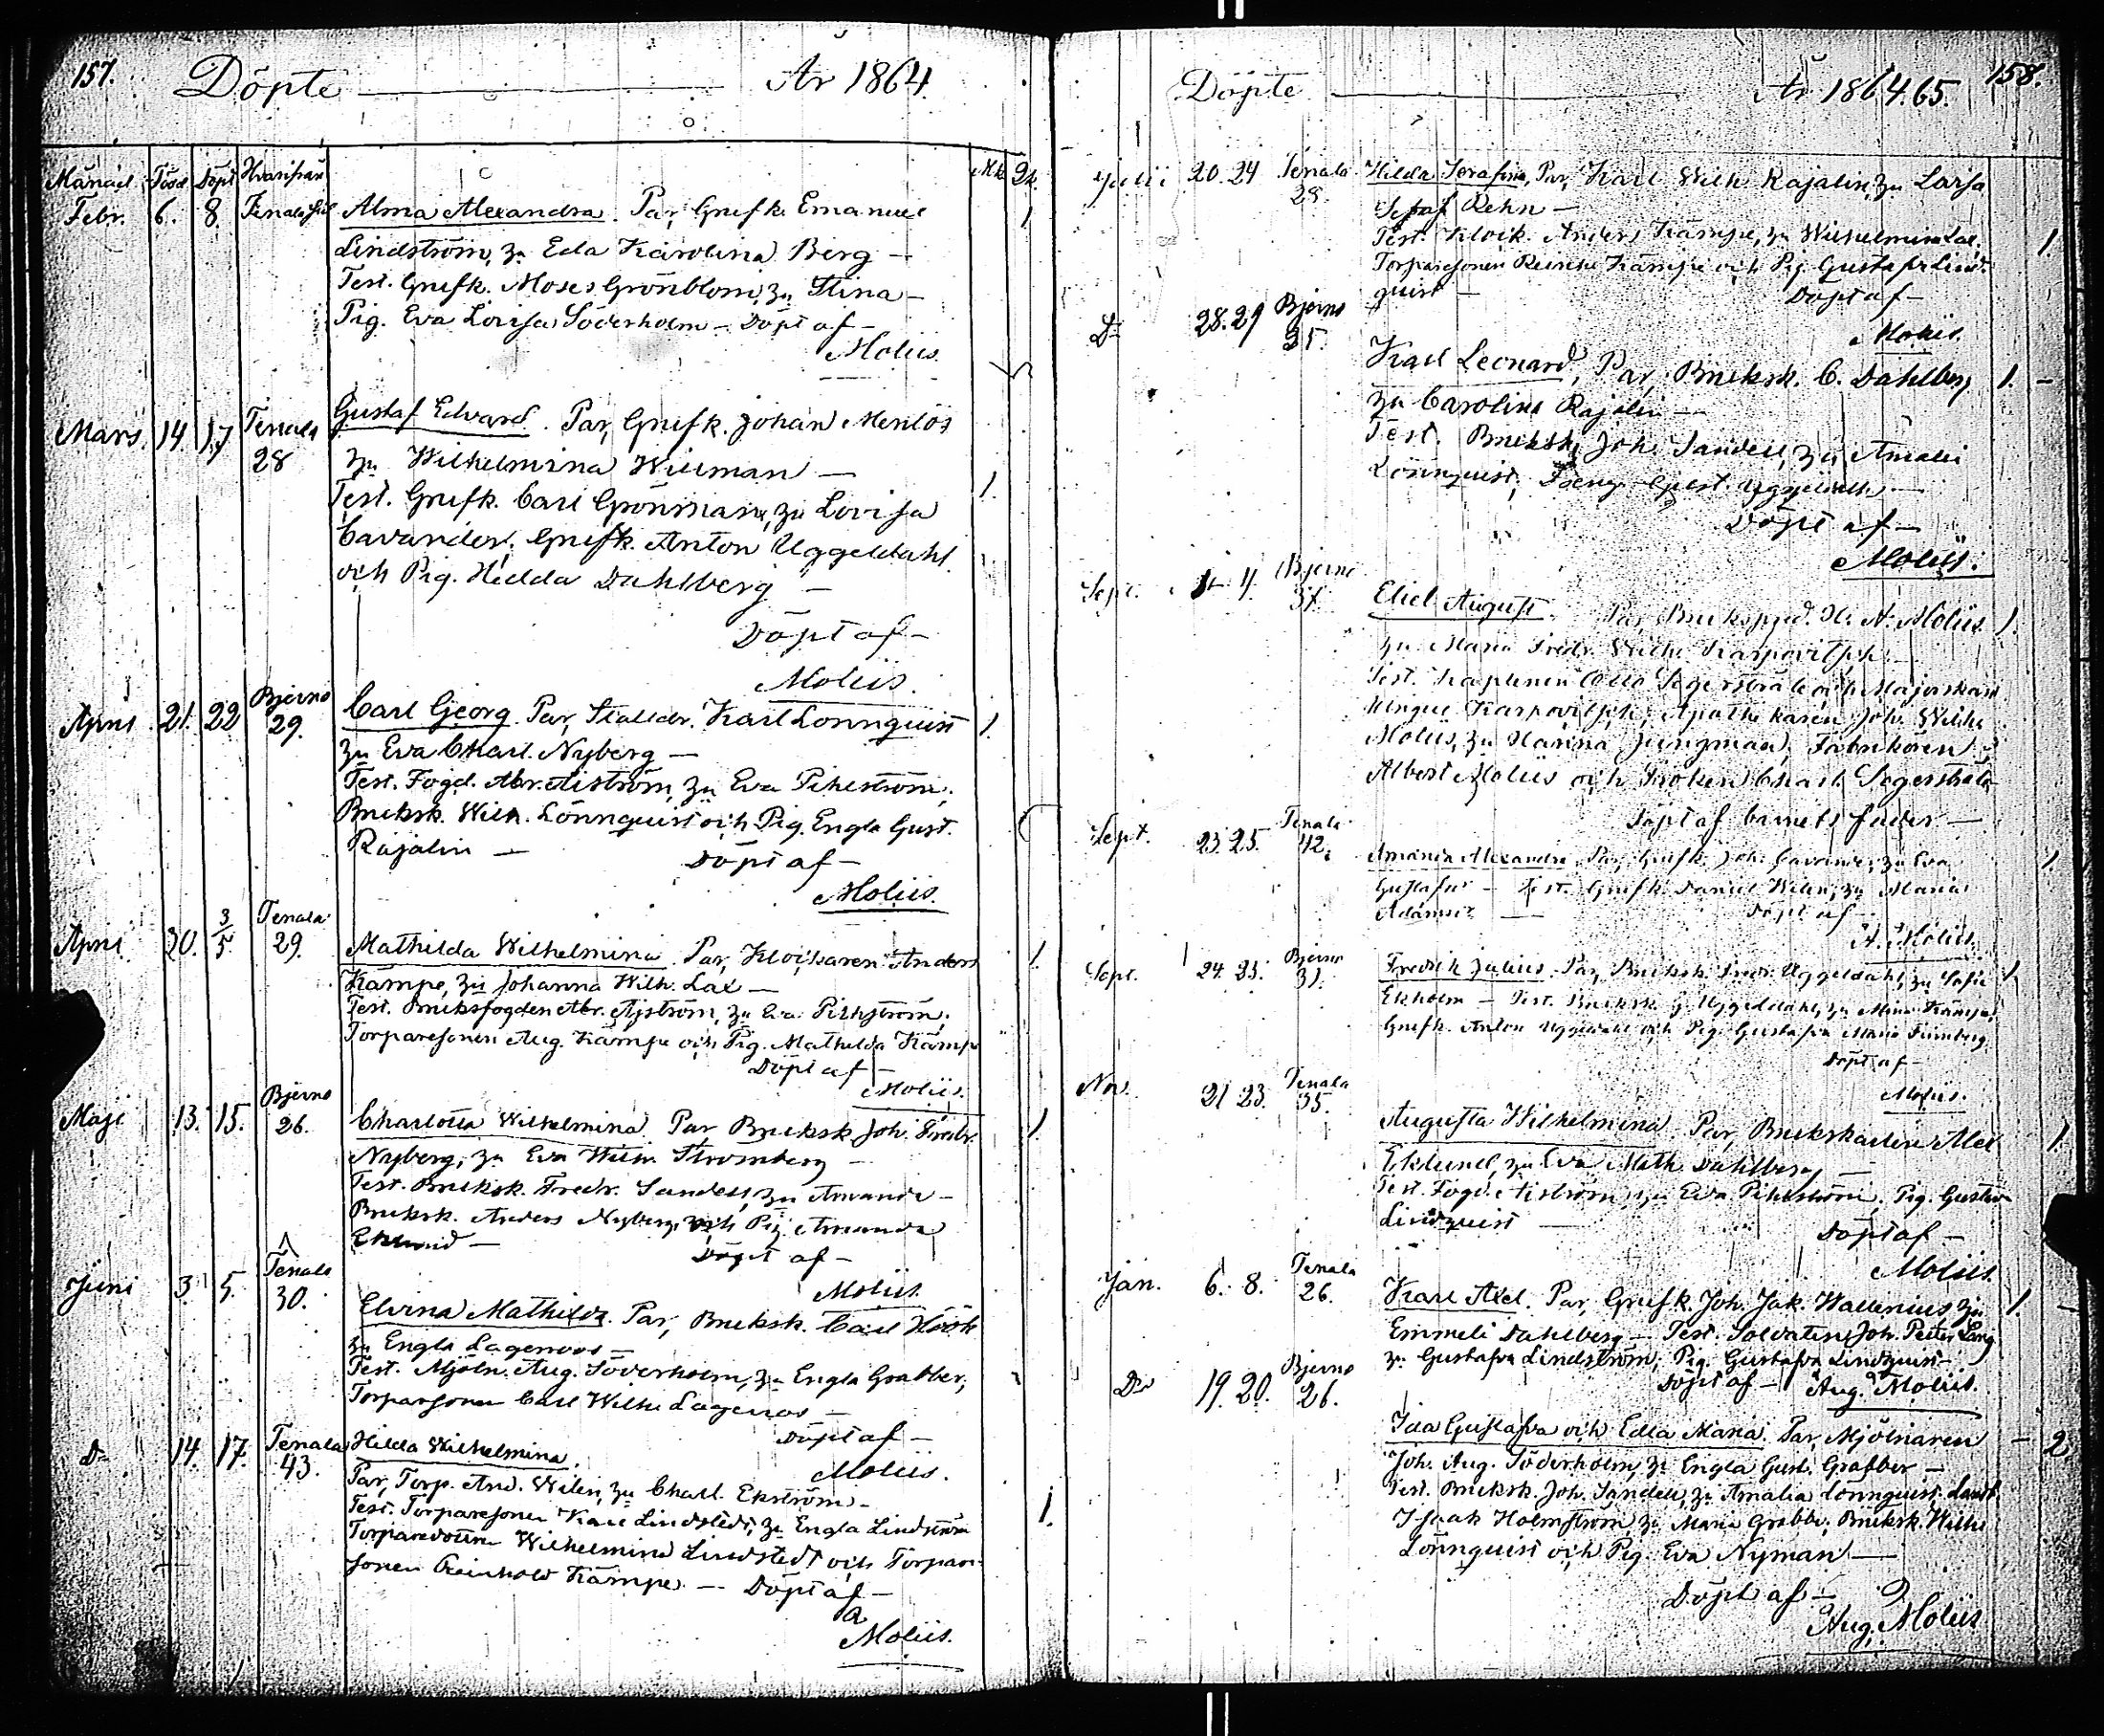 157.
Döpte År 1864
Månad Född Döpt Hvarifrån Mk Qk.
Febr. 6. 8. Tenala Alma Alexandra. Par, Grufk. Emanuel 1
Lindström, zu Eda Karolina Berg —
Test. Grufk. Moses Grönblom, zu Stina —
Pig. Eva Lovisa Söderholm — Döpt af —
Moliis.
Mars 14. 17 Tenala 28 Gustaf Edvard. Par, Grufk. Johan Menlös
zu Wilhelmina Willman —
Test. Grufk. Carl Grönman, zu Lovisa 1.
Cavander, Grufk. Anton Uggeldahl
och Pig. Hedda Dahlberg —
Döpt af —
Moliis.
April 21. 22 Bjerno 29. Carl Georg. Par, Kalldr. Karl Lönnquist 1.
zu Eva Charl. Nyberg —
Test. Fogd. Abr. Åiström, zu Eva Pihlström,
Bruksk. Wilh. Lönnquist och Pig. Engla Gust.
Rajalin — Döpt af —
Moliis.
April 30. 3/5. Tenala 29. Mathilda Wilhelmina. Par, Klockaren Anders 1.
Kämpe, zu Johanna Wilh. Lax —
Test. Bruksfogden Abr. Åjström, zu Eva Pihlström,
Torparesonen Aug. Kämpe och Pig. Mathilda Kämpe
Döpt af —
Moliis.
Maji 13. 15. Bjerno 26. Charlotta Wilhelmina. Par Bruksk. Joh. Fredr. 1.
Nyberg, zu Eva Wilh. Stromberg —
Test. Bruksk. Fredr. Sandell, zu Amanda —
Bruksk. Anders Nyberg och Pig Amanda
Eklund — Döpt af —
Moliis.
Juni 3 5. Tenala 30. Elvina Mathilda. Par, Bruksk. Carl Höök
zu Engla Lagerroos —
Test. Mjöln. Aug. Söderholm, zu Engla Grabber,
Torparsonen Carl Wilh. Lagerros —
Döpt af —
Moliis.
Do 14. 17. Tenala 43. Hilda Wilhelmina.
Par, Torp. And. Wilen, zu Charl. Ekström —
Test. Torparesonen Karl Lindstedt, zu Engla Lindström 1.
Torparedottern Wilhelmina Lindstedt och Torpare-
sonen Reinhold Kämpe. — Döpt af —
A
Moliis.
158.
Döpte År 1864.65.
Julii 20. 24 Tenala 28. Hilda Serafina, Par, Karl Wilh. Rajalin, zu Larsa
Rehn —
Test. Klock. Anders Kämpe, zu Wilhelmina Lax. 1.
Torparesonen Reinh. Kämpe och Pig. Gustafva Lind-
quist — Döpt af —
Moliis.
Do 28. 29 Bjerno 35. Karl Leonard, Par, Bruksk. C. Dahlberg 1. —
zu Carolina Rajalin —
Test. Bruksk. Joh. Sandell, zu Amalia
Lönnquist, Uggeldahl —
Döpt af —
Moliis.
Sept. 4. Bjerno 37. Eliel August. Par, Brukspred. K. A. Moliis 1.
zu Maria Fredr. Wilh. Karpovitsch —
Test. Kaptenen Otto Segerstråle och Majorskan
Karpovitsch, Apothekaren Joh. Wilh.
Moliis, zu Hanna Jungman, Fabrikören
Albert Moliis och Fröken Charl. Segerstråle
Döpt af barnets fader —
Sept. 23. 25. Tenala 42. Amanda Alexandra. Par, Grufk. Joh. Cavander, zu Eva 1.
Gustafva — Test. Grufk. Daniel Wilen, zu Maria
Adamsdr — Döpt af —
A. Moliis.
Sept. 24. 25. Bjerno 31. Fredrik Julius. Par, Bruksk. Fredr. Uggeldahl, zu Sofia 1
Ekholm — Test. Bruksk. G. Uggeldahl, zu Mina Kämpe,
Grufk. Anton Uggeldahl och Pig. Gustafva Maria
Döpt af —
Moliis.
Nov. 21 23. Tenala 35. Augusta Wilhelmina. Par, Brukskarlen Alex 1.
Eklund, zu Eva Math. Dahlberg —
Test. Fogd. Åiström, zu Eva Pihlström, Pig. Gustava
Lindquist — Döpt af —
Moliis.
Jan. 6. 8. Tenala 26. Karl Axel. Par, Grufk. Joh. Jak. Wallenius, zu 1. —
Emmeli Dahlberg — Test. Soldaten Joh. Petter Lång
zu Gustafva Lindström, Pig. Gustafva Lindquist —
Döpt af — Aug. Moliis.
Do 19. 20. Bjerno 26. Ida Gustafva och Edla Maria. Par, Mjölnaren — 2.
Joh. Aug. Söderholm, zu Engla Gust. Grabber —
Test. Bruksk. Joh. Sandell, zu Amalia Lönnquist,
Isaak Holmström, zu Maria Grabbe, Bruksk. Wilh.
Lönnquist och Pig. Eva Nyman —
Döpt af —
Aug. Moliis